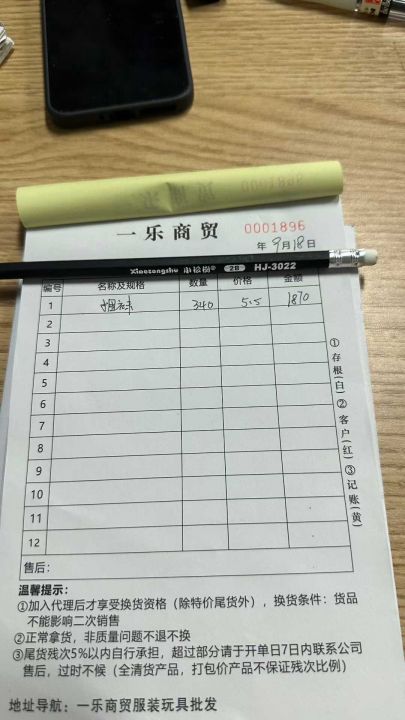 一乐商贸 0001896
年 9月18日
Xiaozongshu 小棕树 2B HJ-3022
编号 名称及规格 数量 价格 金额
1 340 5.5 1870
2
3
4
5
6
7
8
9
10
11
12
①存根(白)②客户(红)③记账(黄)
售后：
温馨提示：
①加入代理后才享受换货资格（除特价尾货外），换货条件：货品
不能影响二次销售
②正常拿货，非质量问题不退不换
③尾货残次5%以内自行承担，超过部分请于开单日7日内联系公司
售后，过时不候（全清货产品，打包价产品不保证残次比例）
地址导航：一乐商贸服装玩具批发